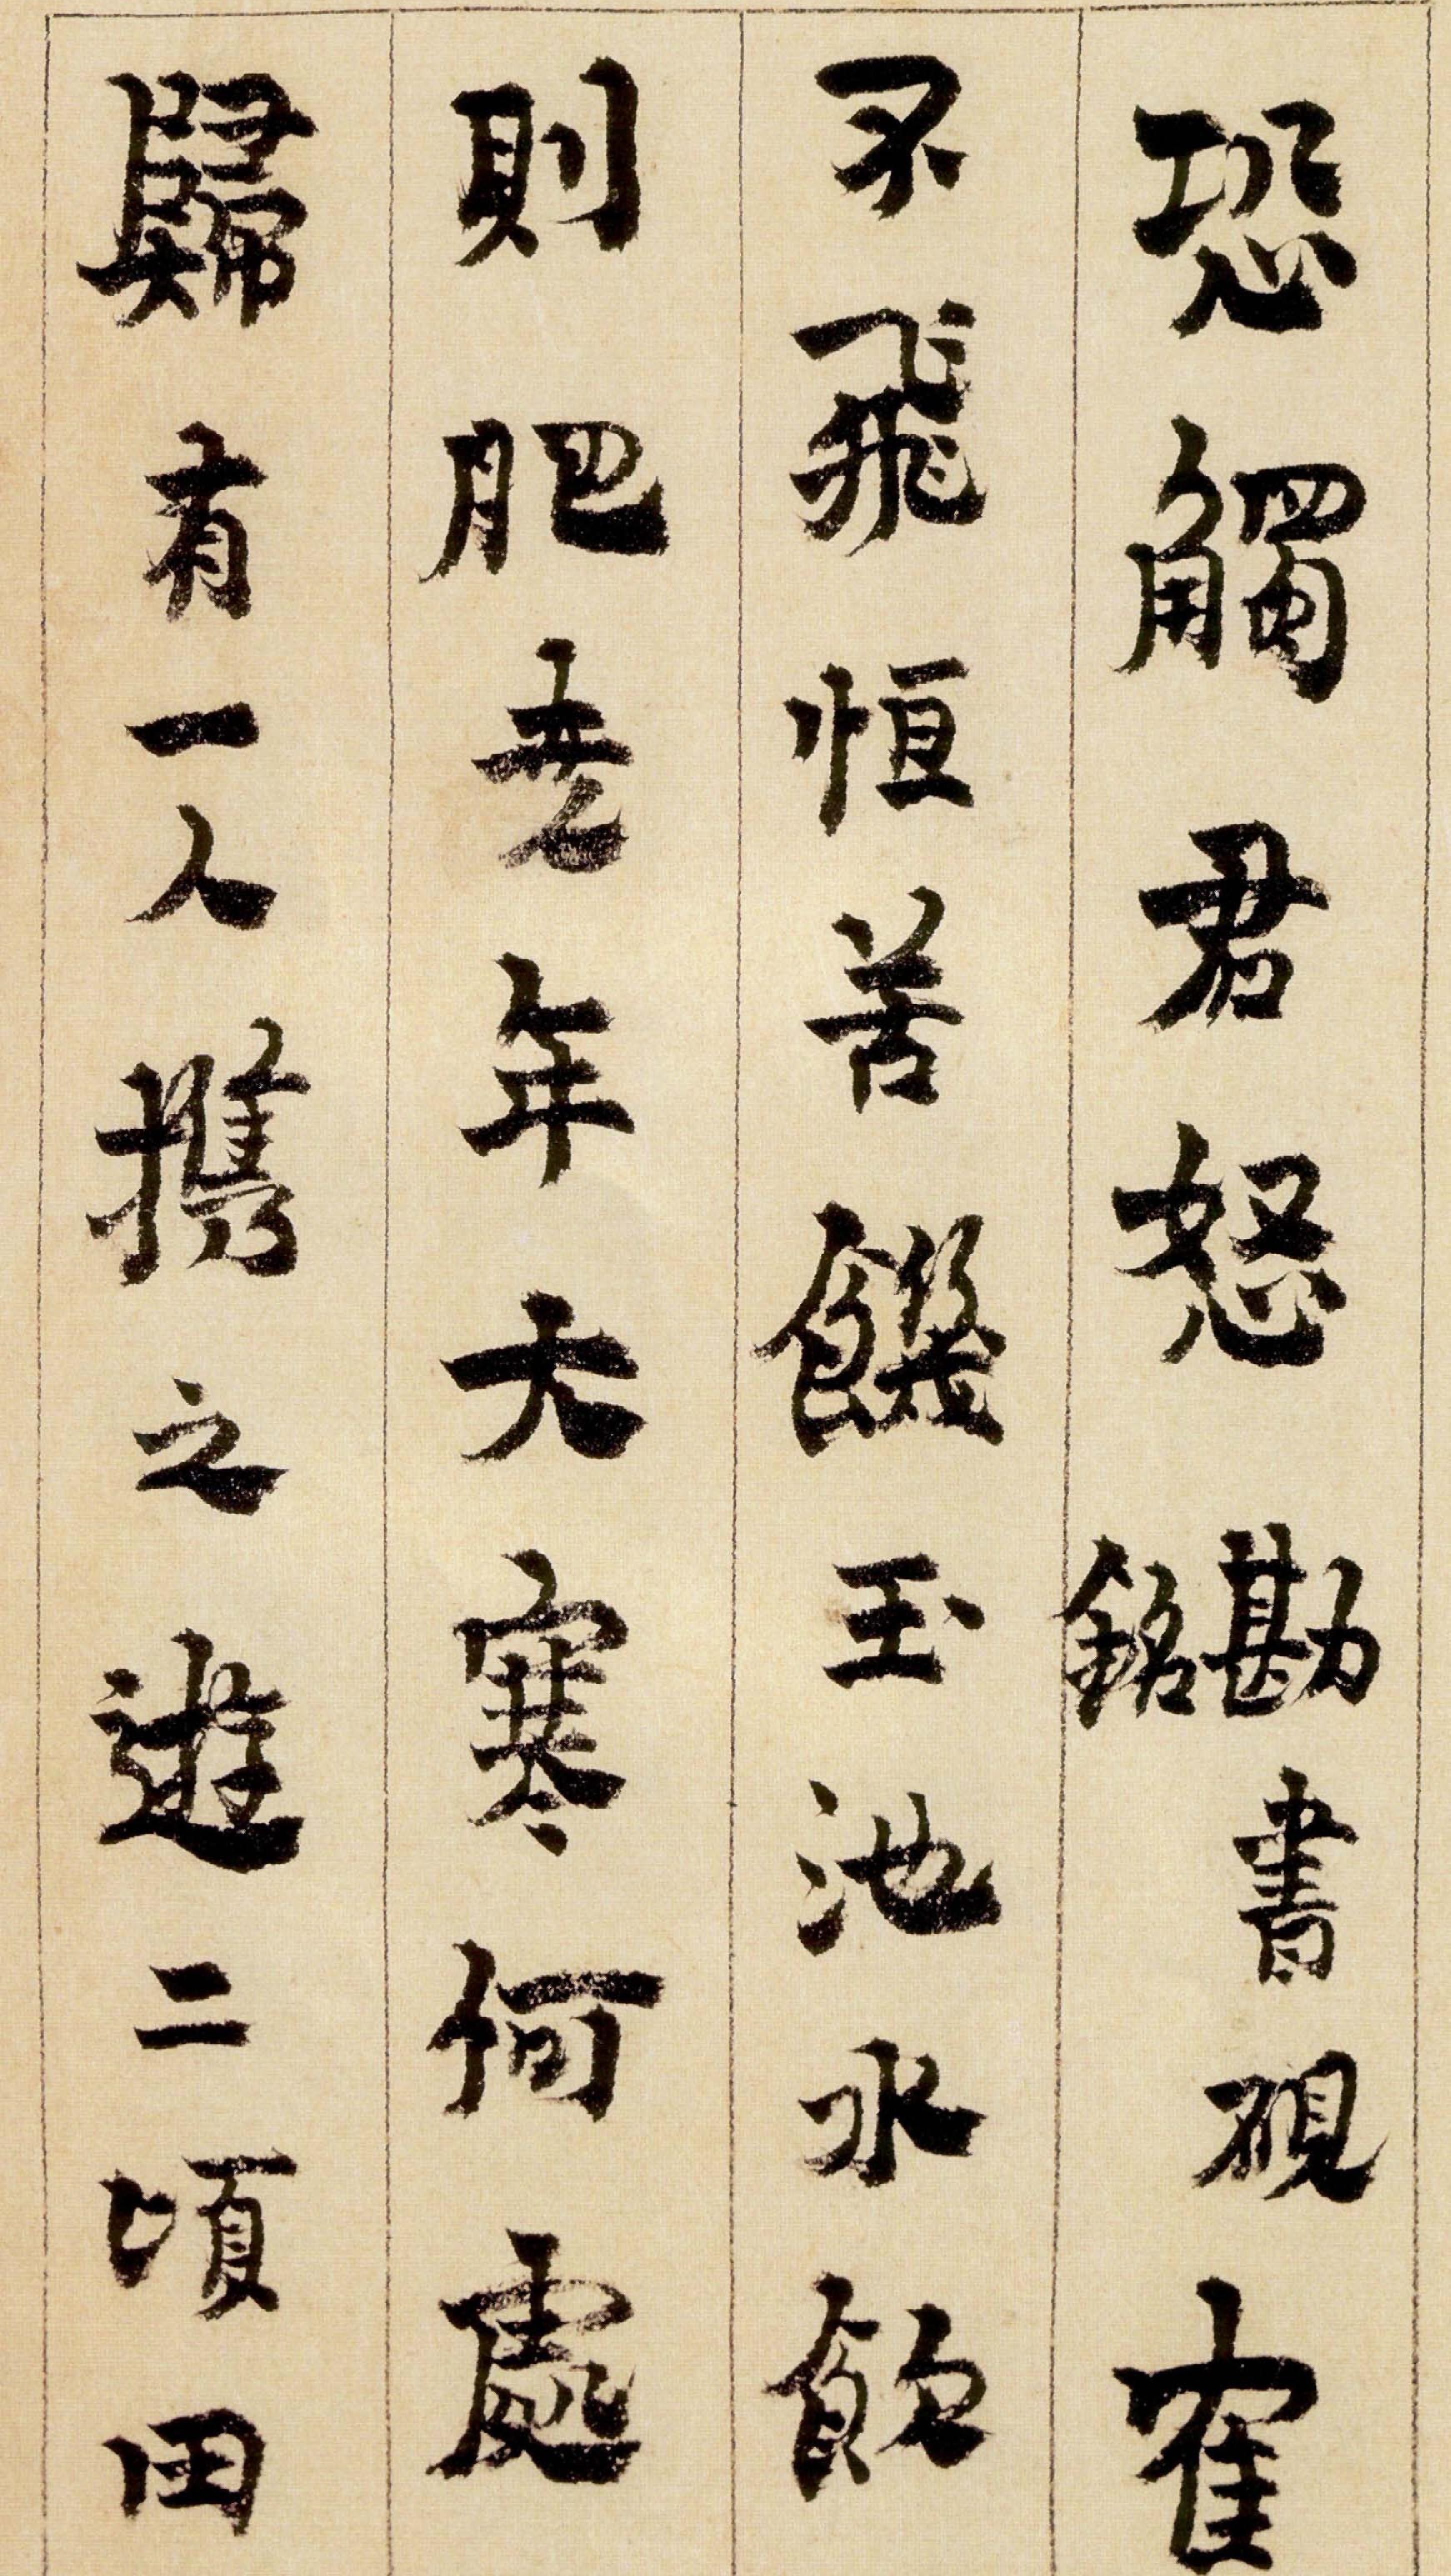 恐觸君怒 勘書硯銘 隺
不飛恒苦饑玉池水飲
則肥堯年大寒何處
歸有一人携之遊二頃田